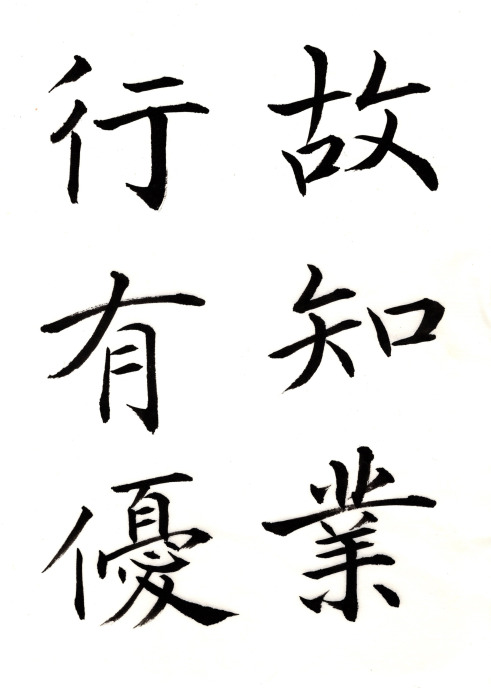 故知業
行有優